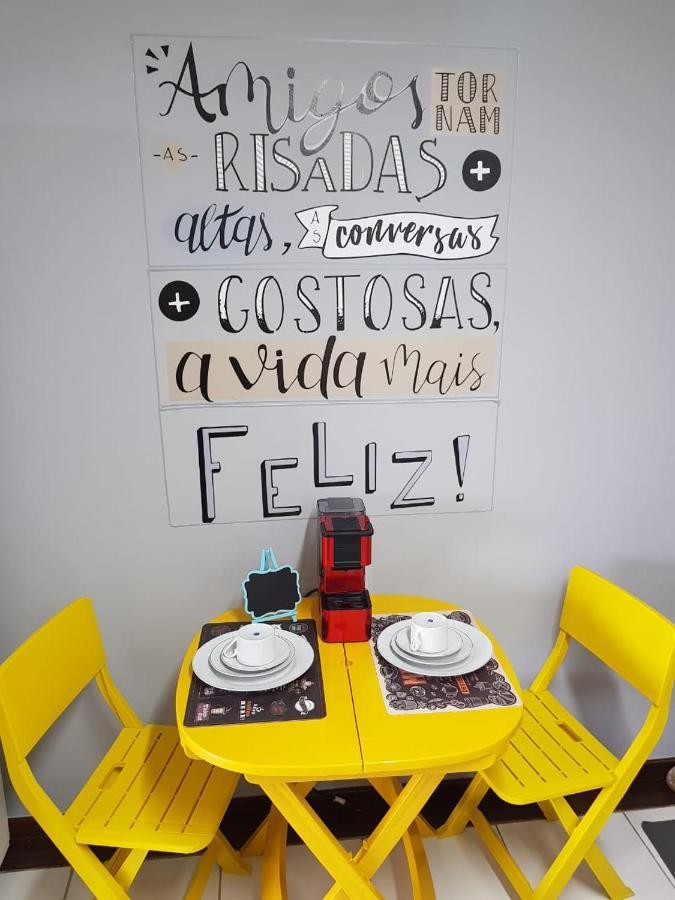 Amigos TOR
NAM
-AS- RISADAS +
altas, AS conversas
+ GOSTOSAS,
a vida mais
FELIZ!